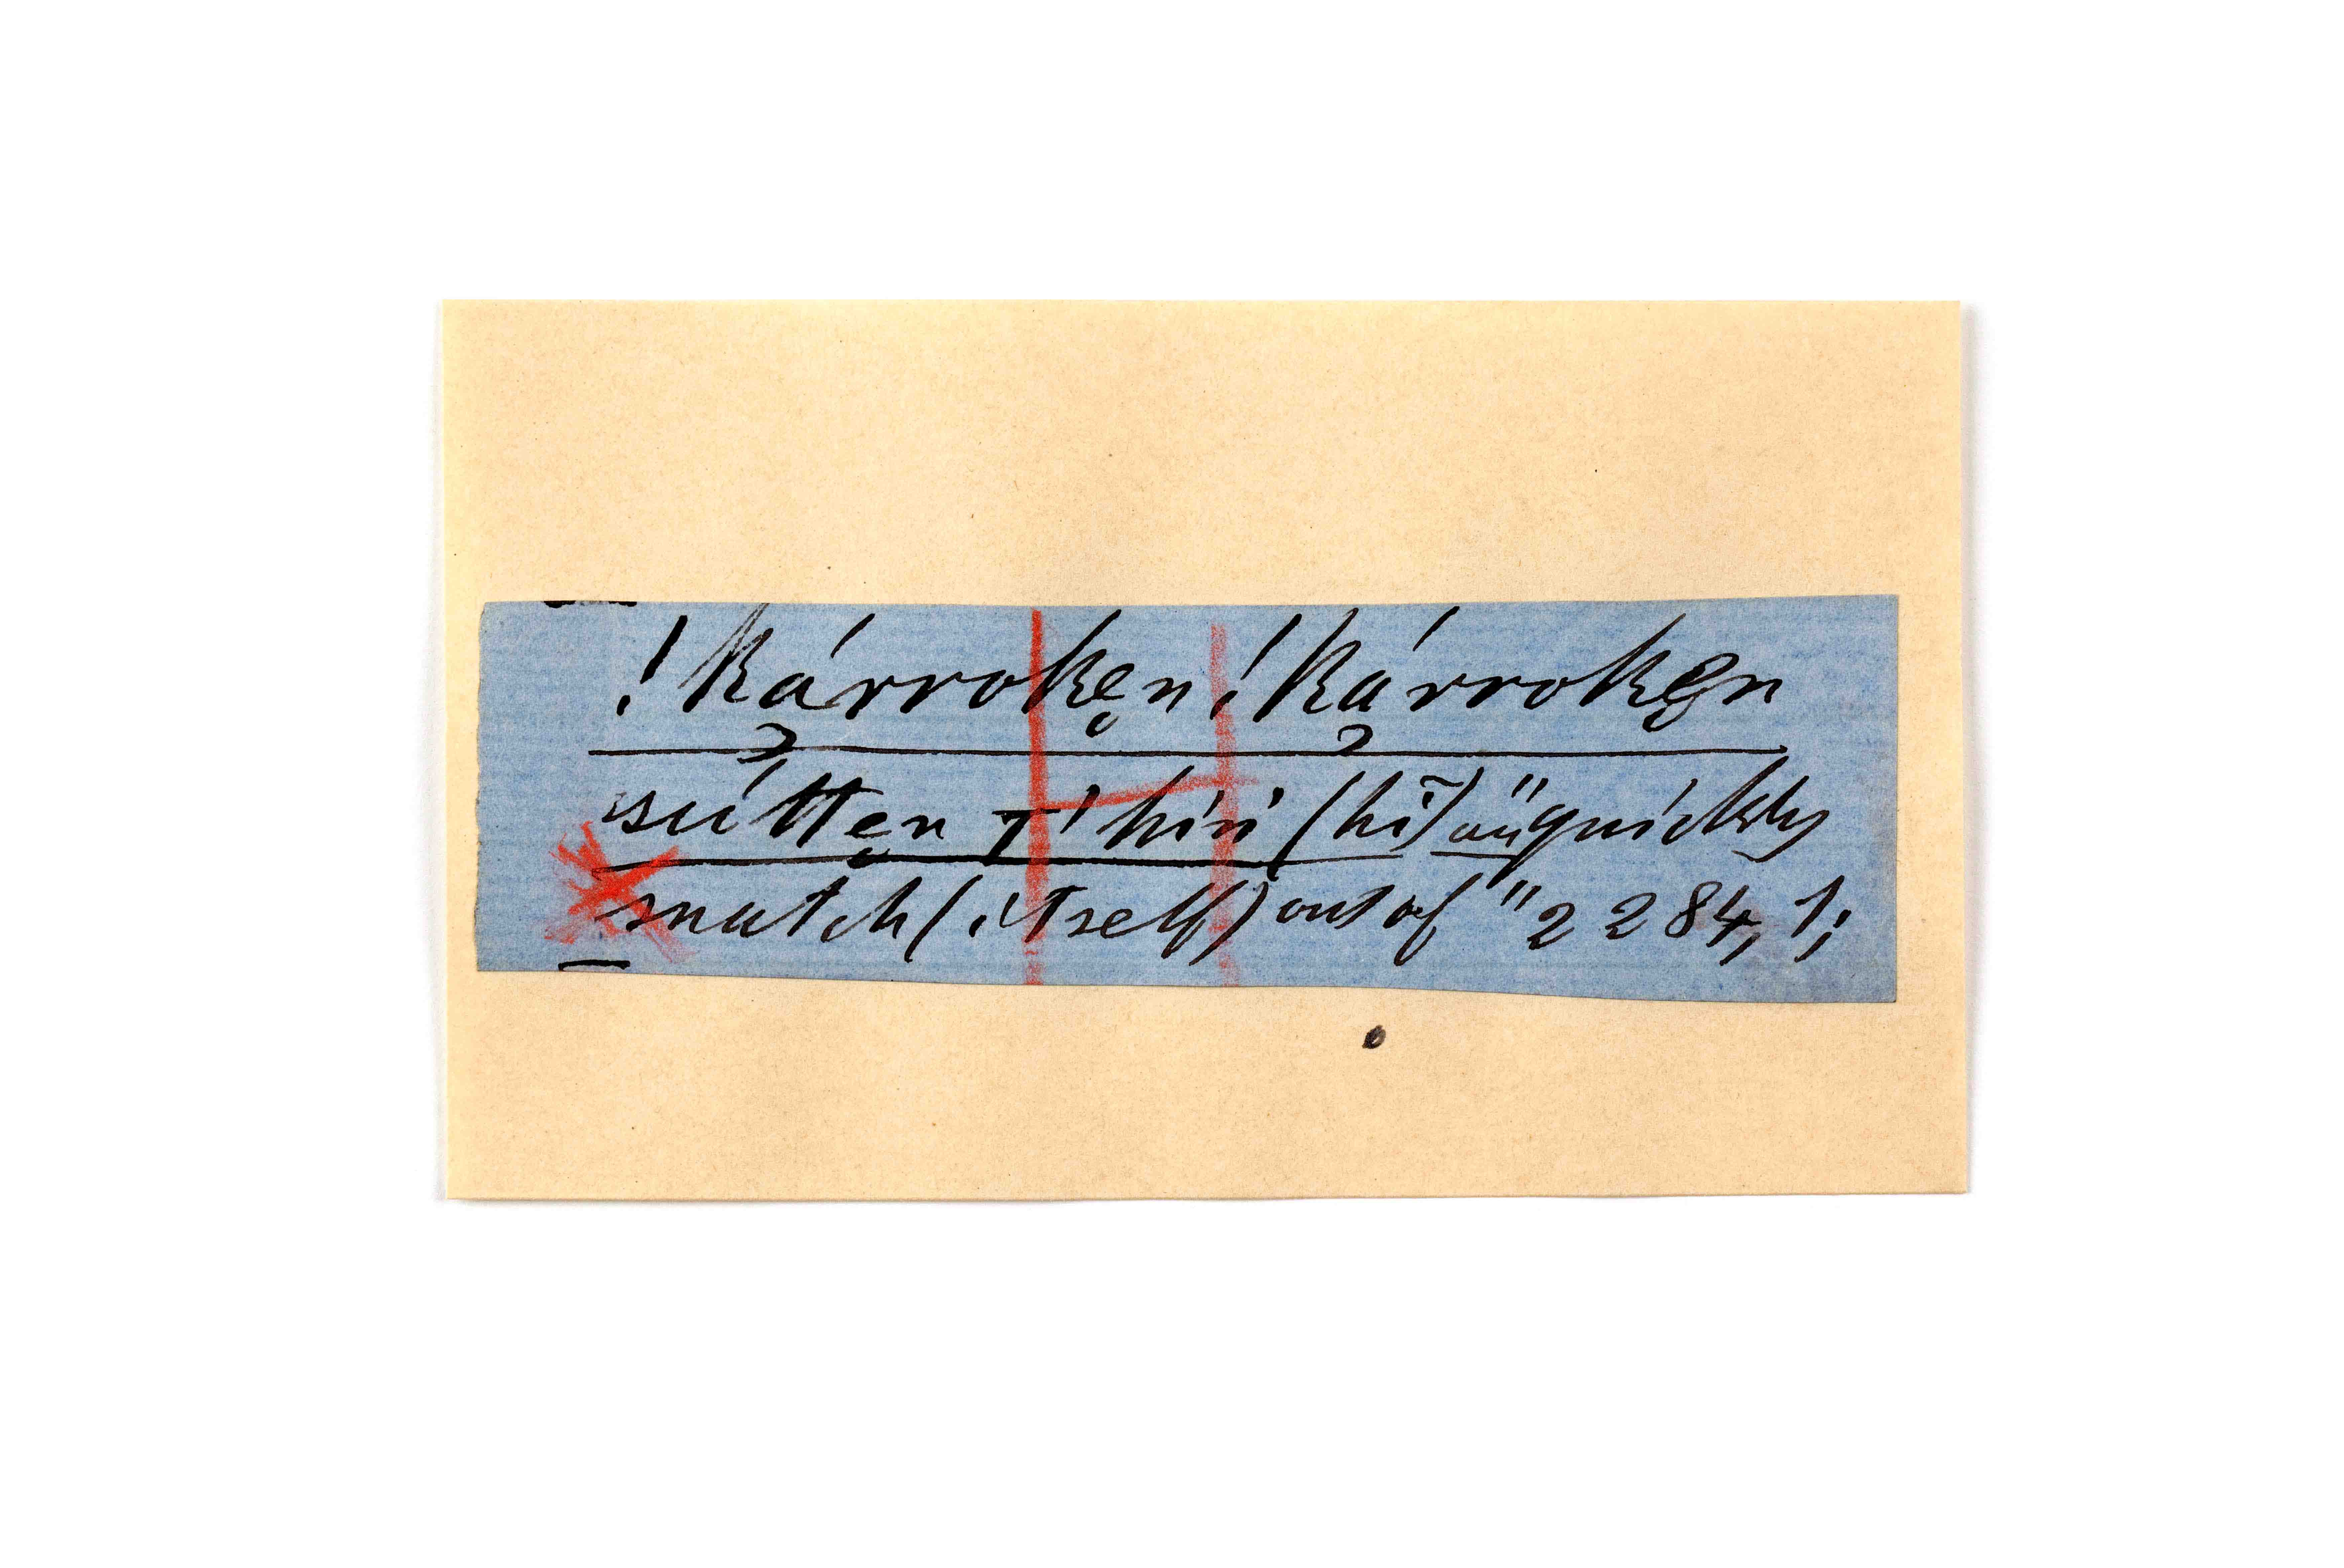 !kárroken !kárroken
sútten T' hiń (hĩ) "quickly
snatch (itself) out of" 2 284, 1;